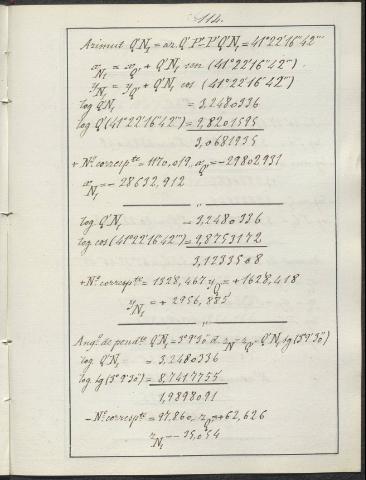 114.
Azimut Q'N₁ = az. Q'P' - P'Q'N₁ = 41°22'16"42'''
x_N₁ = x_Q' + Q'N₁ sen (41°22'16"42''')
y_N₁ = y_Q' + Q'N₁ cos (41°22'16"42''')
log QN₁ = 3,2480336
log (41°22'16"42''') = 9,8201595
3,0681935
+ Nº correspte = 1170,019, x_Q' = -29802,931
x_N₁ = - 28632,912
log Q'N₁ = 3,2480336
log cos (41°22'16"42''') = 9,8753172
3,1233508
+ Nº correspte = 1328,467 y_Q' = + 1628,418
y_N₁ = + 2956,885
Angº de pendte Q'N₁ = 3°9'30" d. z_N = z_Q' - Q'N₁ tg (3°9'30")
log Q'N₁ = 3,2480336
log tg (3°9'30") = 8,7417755
1,9898091
- Nº correspte = 97,860 - z_Q' = + 62,626
z_N₁ = - 35,054